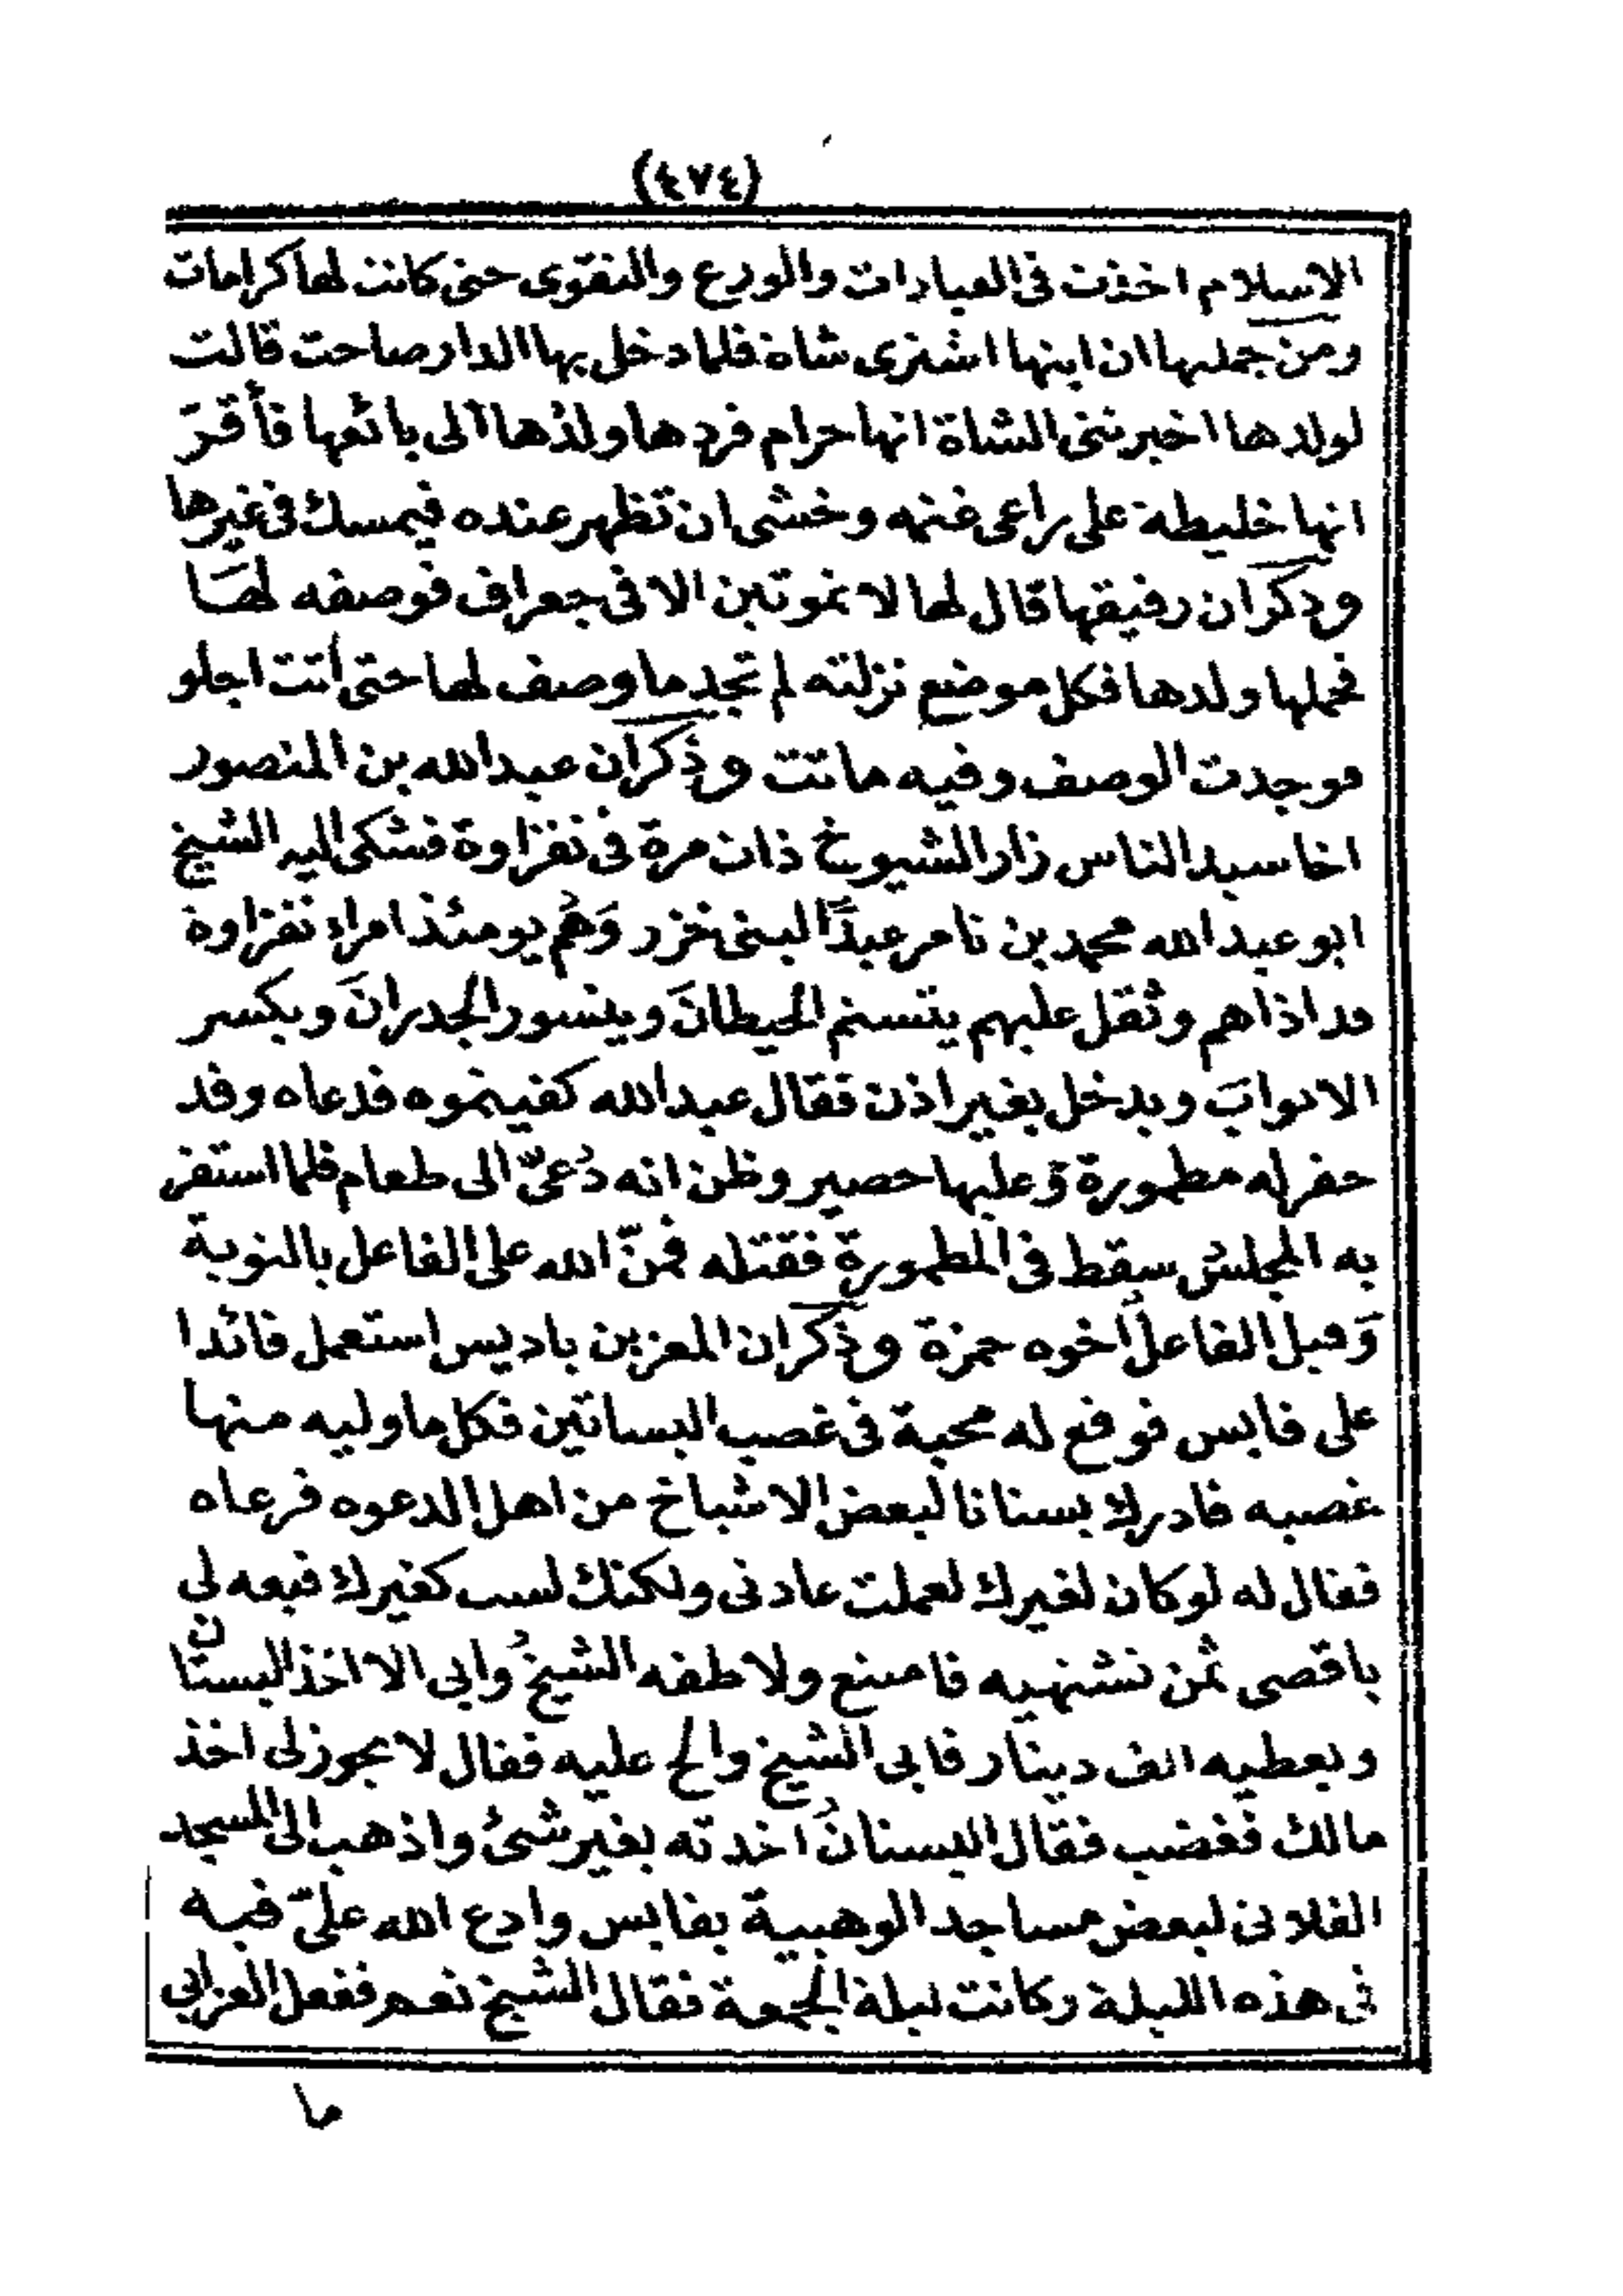 (٤٧٤)
الاسلام اخذت فى العبادات والورع والتقوى حتى كانت لها كرامات
ومن جملتها ان ابنها اشترى شاة فلما دخل بها الدار صاحت قالت
لولدها اخبرتنى الشاة انها حرام فردها ولدها الى بائعها فأقرّ
انها خليطة على راعى غنمه وخشى ان تظهر عنده فيمسك فى غيرها
وذكر ان رفيقها قال لها لا تموتين الا فى جعراف فوصفه لها
فحملها ولدها فكل موضع نزلته لم تجد ما وصف لها حتى أتت اجلو
فوجدت الوصف وفيه ماتت وذكر ان عبد الله بن المنصور
اخا سيد الناس زار الشيوخ ذات مرة فى نفزاوة فشكى اليه الشيخ
ابو عبد الله محمد بن تامر عبدًا لبنى خزر وَهُم يومئذ امراء نفزاوة
قد اذاهم وثقل عليهم يتسنم الحيطانَ ويتسور الجدرانَ ويكسر
الابوابَ ويدخل بغير اذن فقال عبد الله كفيتموه فدعاه وقد
حفر له مطمورة وعليها حصير وظن انه دُعىّ الى طعام فلما استقر
به المجلسُ سقط فى المطمورة فقتله فمنّ الله على الفاعل بالتوبة
وَقيل الفاعل اخوه حمزة وذكر ان المعز بن باديس استعمل قائدا
على قابس فوقع له محبة فى غصب البساتين فكل ما وليه منها
غصبه فادرك بستانا لبعض الاشياخ من اهل الدعوه فرعاه
فقال له لو كان لغيرك لعملت عادتى ولكنك لست كغيرك فبعه لى
باقصى ثمن تشتهيه فامتنع ولاطفه الشيخُ وابى الا اخذ البستان
ويعطيه الف دينار فابى الشيخ والح عليه فقال لا يجوز لى اخذ
مالك فغضب فقال البستانُ اخدته بغير شئ واذهب الى المسجد
الفلانى لبعض مساجد الوهبية بقابس وادع الله علىّ فيه
فى هذه الليلة وكانت ليلة الجمعة فقال الشيخ نعم ففعل العزابى
ما